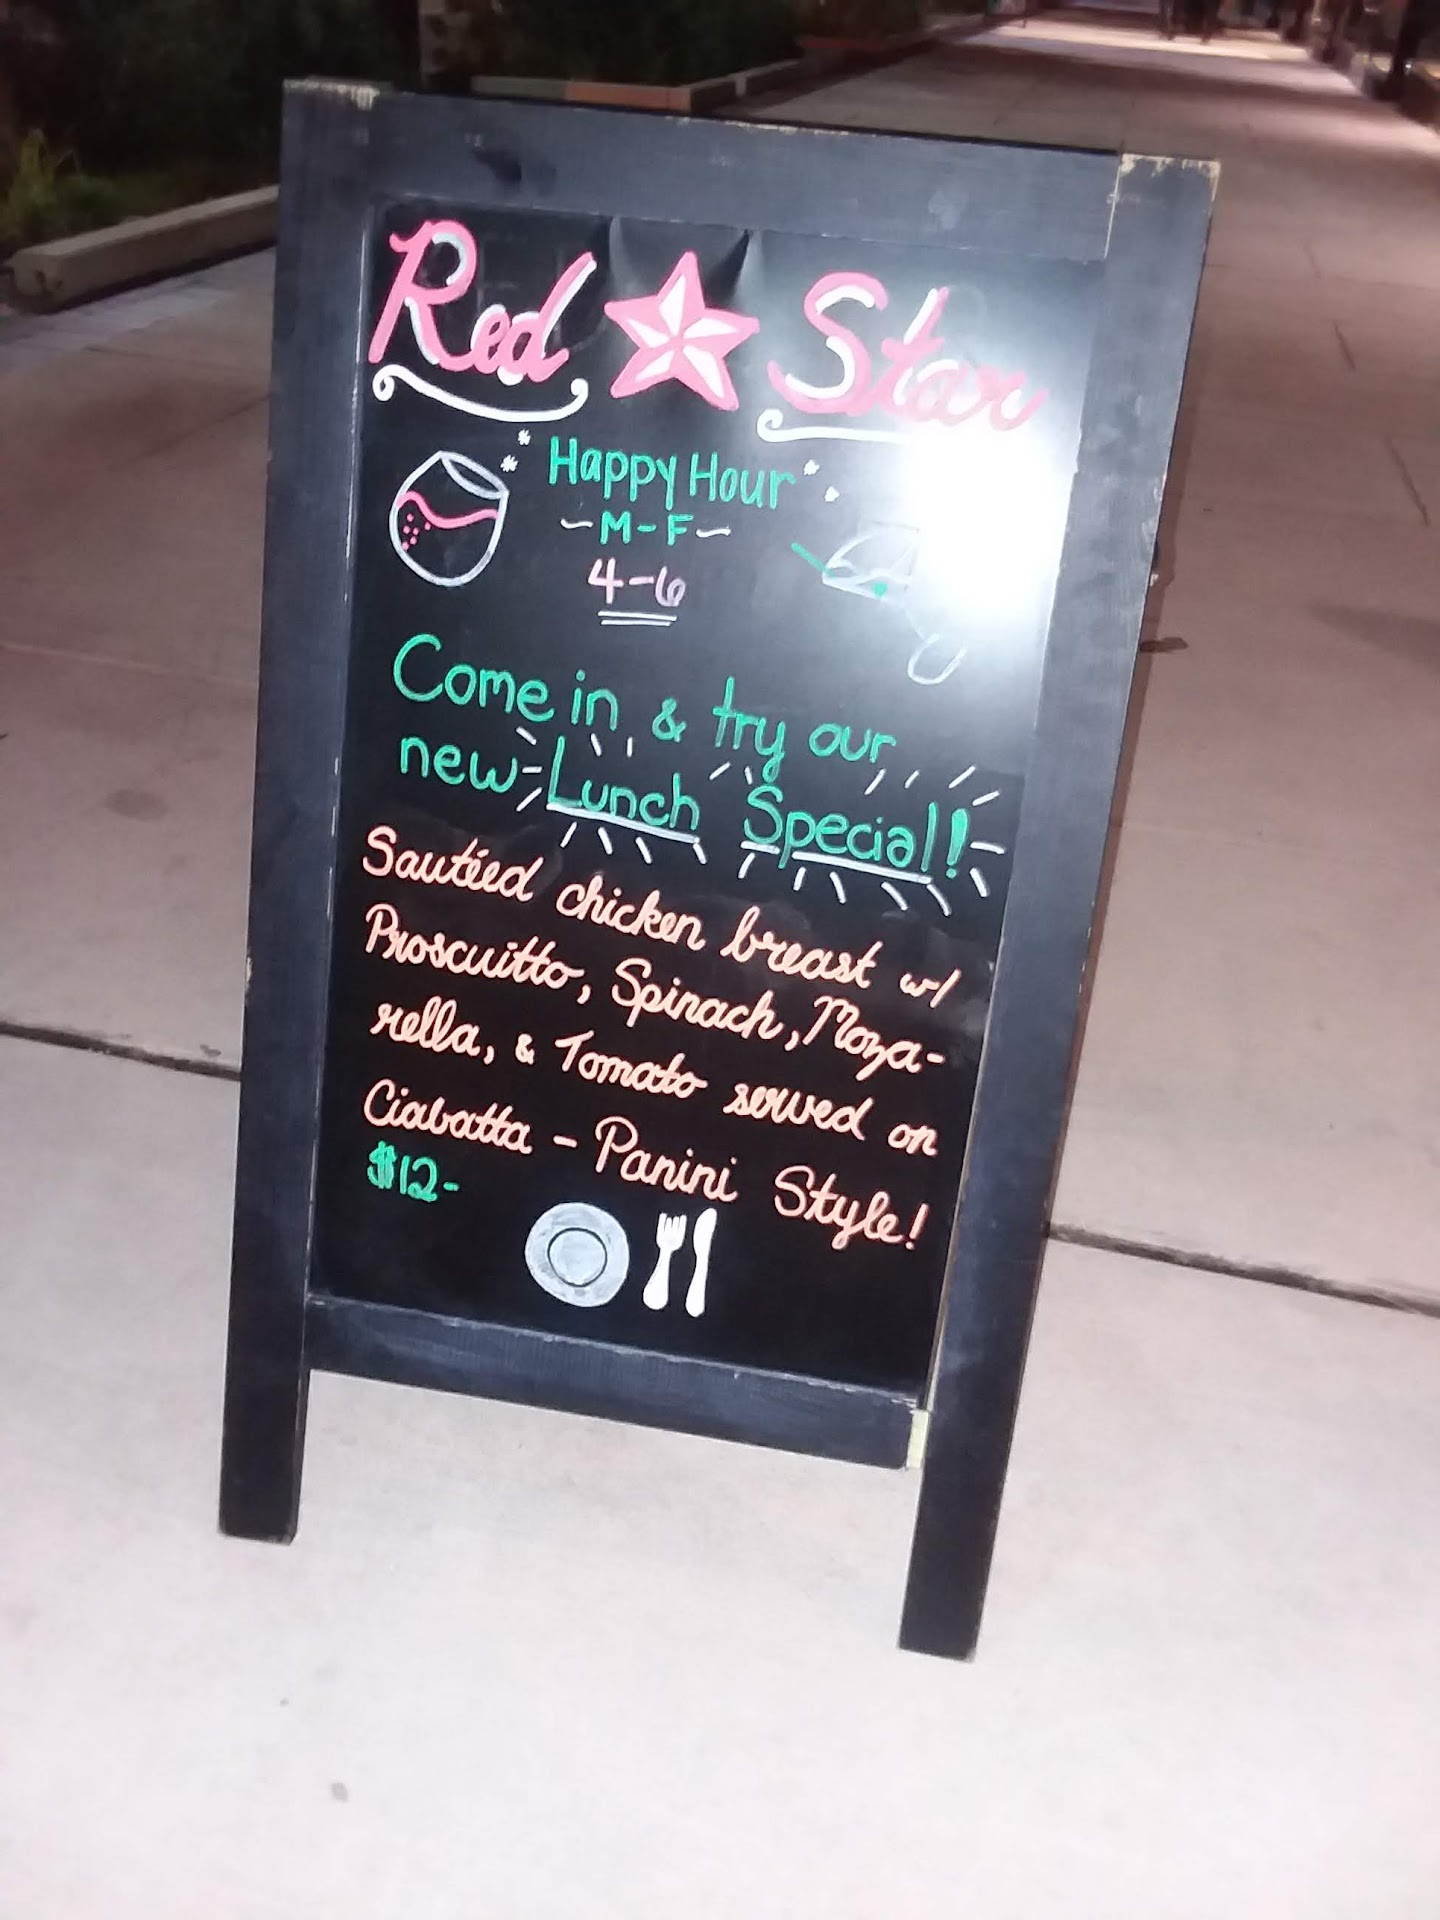 Red Star
Happy Hour
~M-F~
4-6
Come in & try our
new Lunch Special!
Sautéed chicken breast w/
Proscuitto, Spinach, Moza-
rella, & Tomato served on
Ciabatta - Panini Style!
$12-